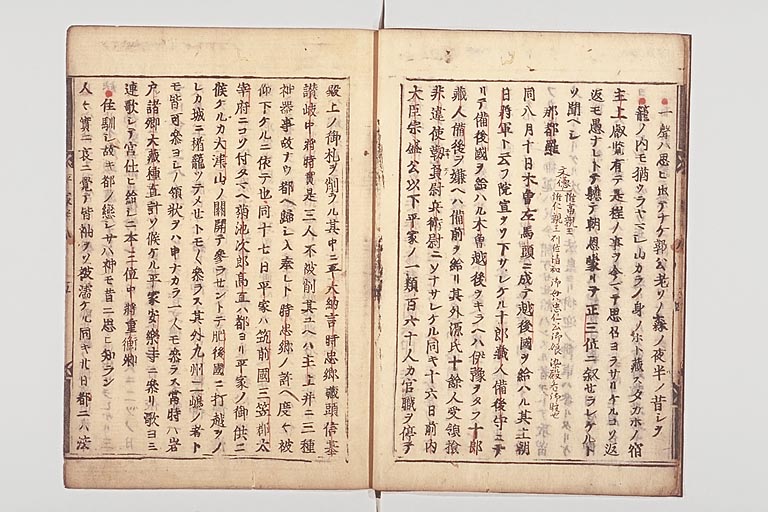 一聲ハ思ヒ出テナケ郭公老ソノ森ノ夜半ノ昔シヲ
籠ノ内モ猶ウラヤマシ山カラノ身ノホト藏スタカホノ宿
主上叡覧有テ是程ノ事ヲ今マテ思召ヨラサリケルコソ返
返モ愚ナレトテ朝恩蒙リテ正三位ニ叙セラレケルト
ソ聞ヘシ
那都羅
同八月十日木曽左馬頭ニ成テ越後國ヲ給ハル其上朝
日将軍ト云フ院宣ヲソ下サレケル十郎藏人備後守ニテ
リテ備後國ヲ給ハル木曽越後ヲキラヘハ伊豫ヲタフ十郎
藏人備後ヲ嫌ヘハ備前ヲ給リ其外源氏十餘人受領撿
非違使靱負尉兵衛尉ニソナサレケル同キ十六日前内
大臣宗盛公以下平家ノ一類百六十人カ官職ヲ停テ
殿上ノ御札ヲ削ラル其中ニ平大納言時忠卿藏頭信基
讃岐中将時實是三人不被削其ユヘハ主上并ニ三種
神器事故ナウ都ヘ歸シ入奉レト時忠卿ノ許ヘ度々被
仰下ケルニ依テ也同十七日平家ハ筑前國三笠郡太
宰府ニコソ付タマヘ菊池次郎高直ハ都ヨリ平家ノ御供ニ
候ケルカ大津山ノ關開テ參ラセントテ肥後國ニ打越ヲノ
レカ城ニ楯籠ツテメセトモ々々參ラス其外九州二嶋ノ者ト
モ皆可參ヨシノ領状ヲハ申ナカラ一人モ參ラス當時ハ岩
戸諸卿大藏種直計ソ候ケル平家安樂寺ニ參リ歌ヨミ
連歌シテ宮仕ヒ給シニ本三位中将重衡卿
住馴シ故キ都ノ戀シサハ神モ昔ニ思ヒ知ラン
人々實ニ哀ニ覺テ皆袖ヲソ被濡ケル同キ廿日都ニハ法